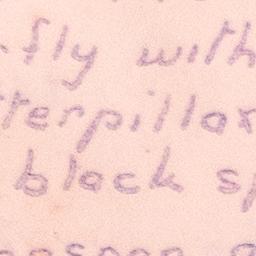 fly with
terpillar
black sp